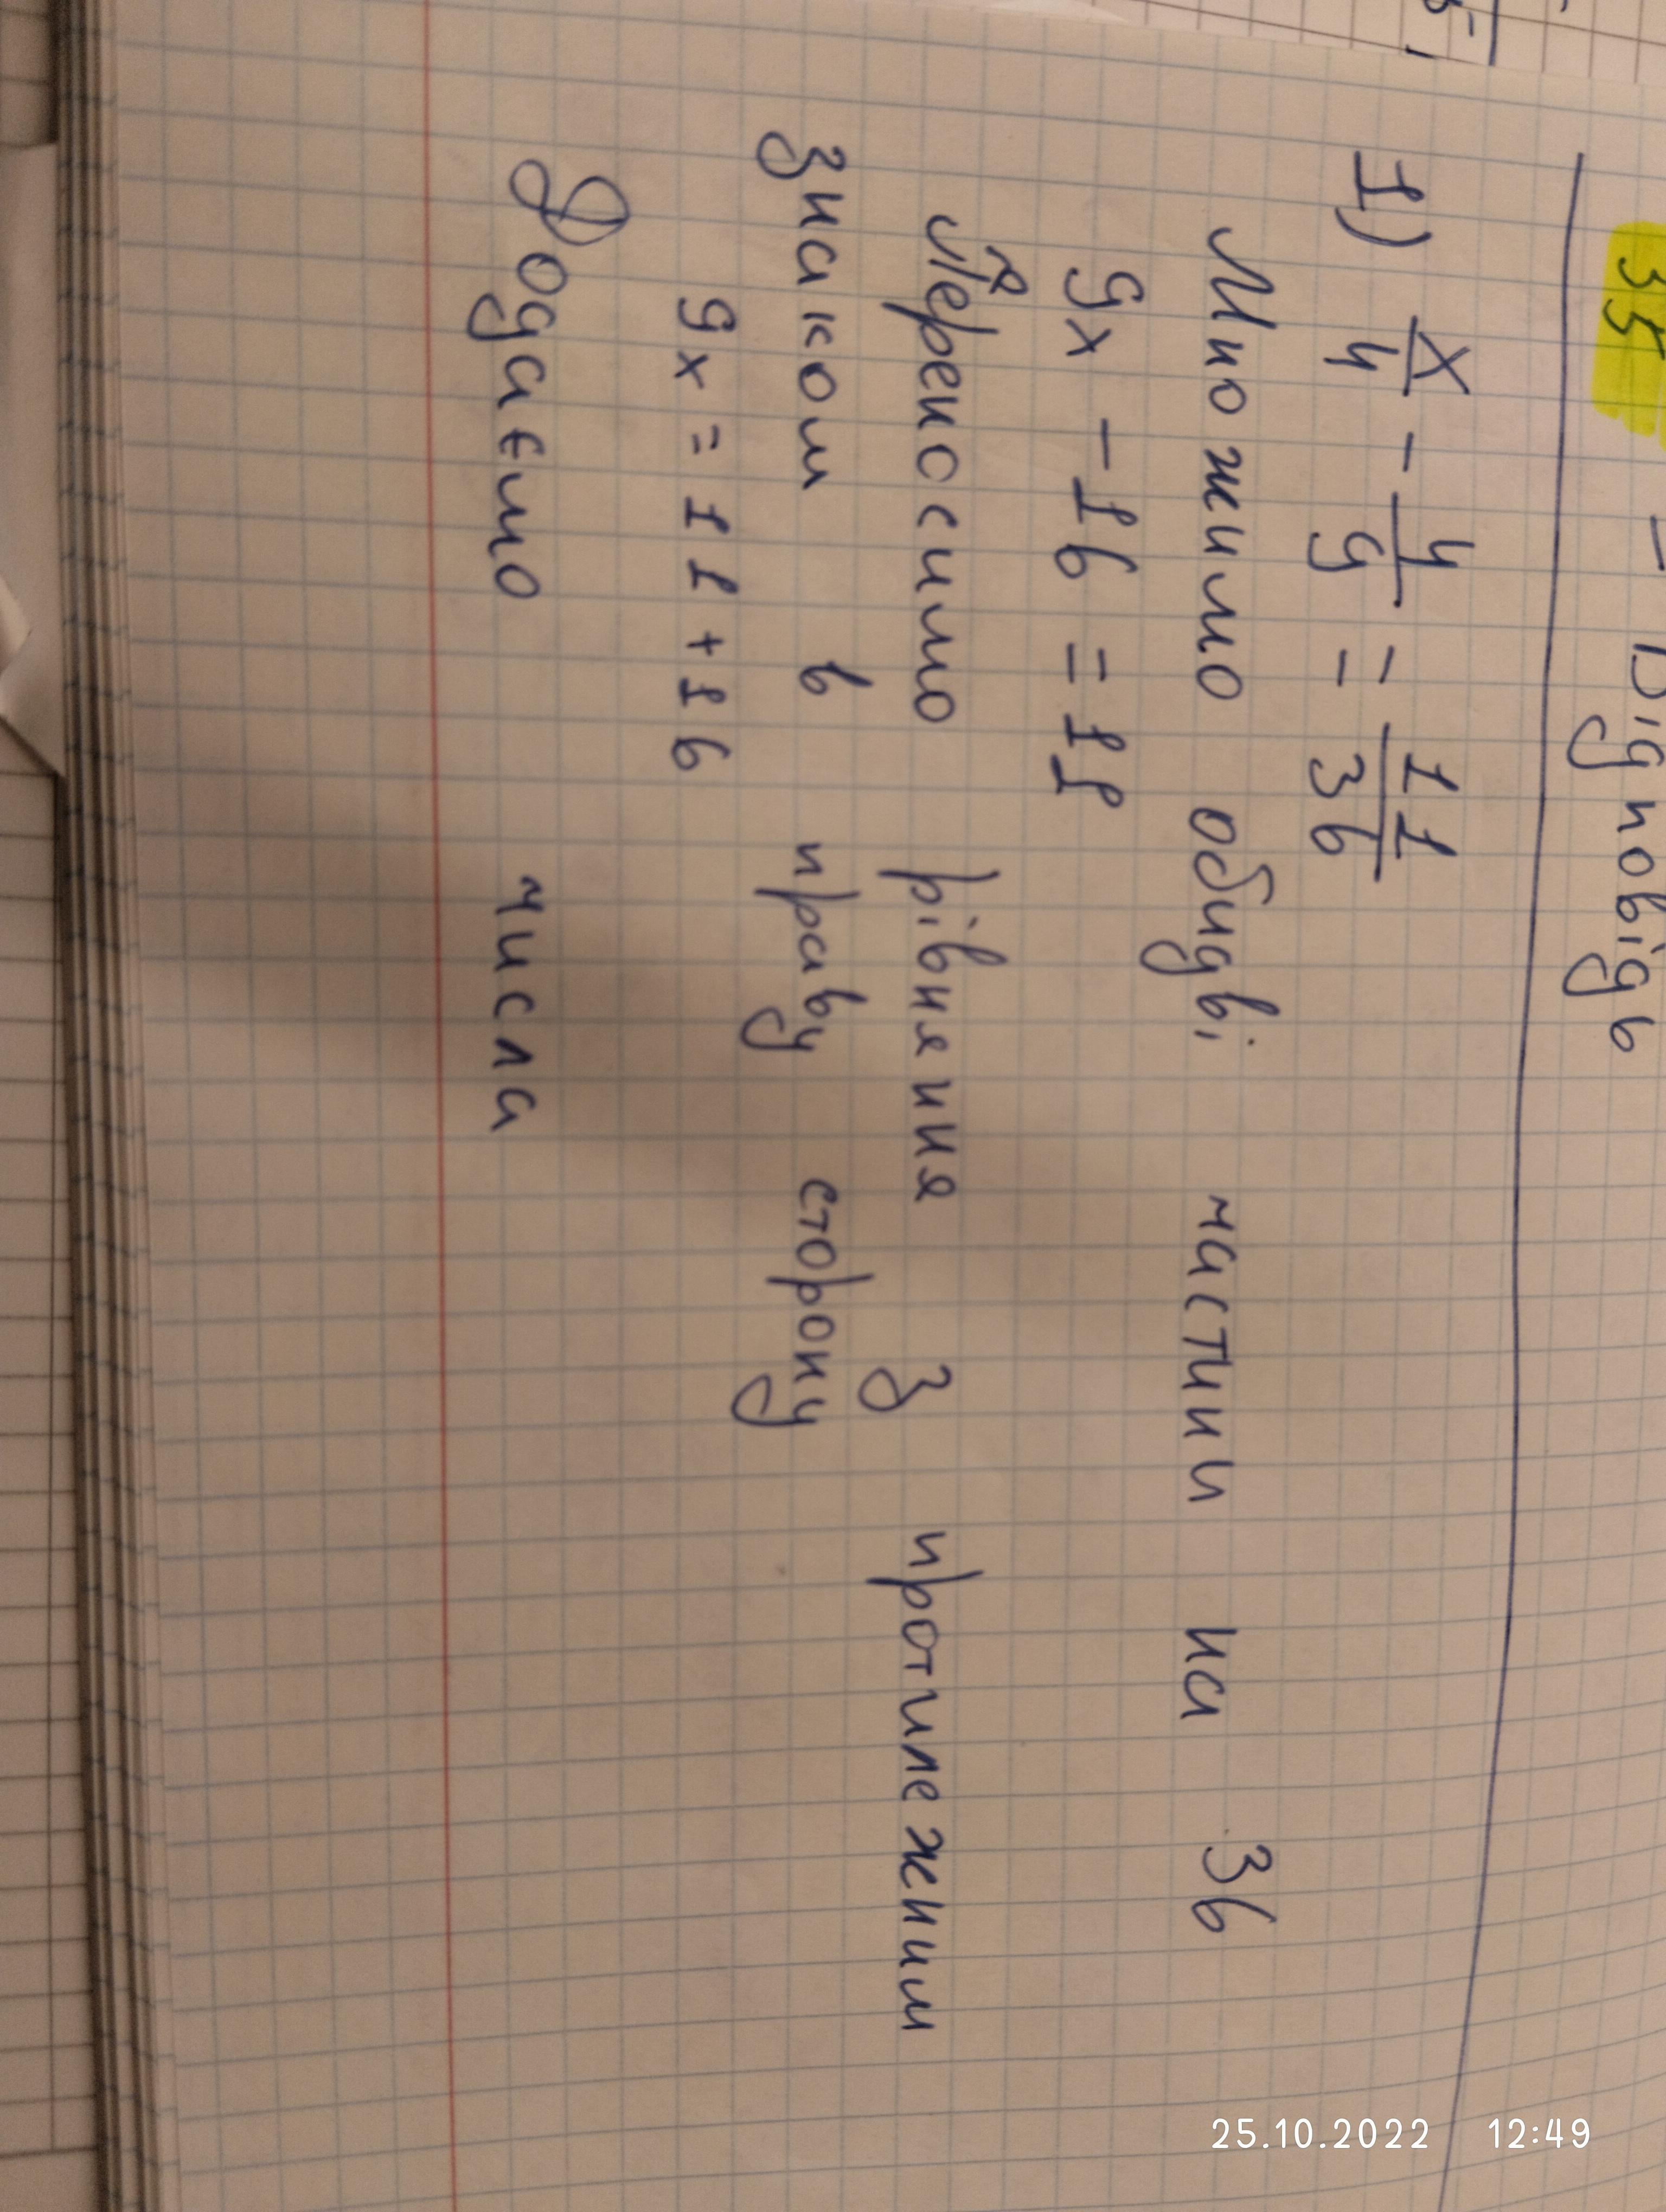 35 – Відповідь
1) x/4 - 4/9 = 11/36
Множимо обидві частини на 36
9x - 16 = 11
Переносимо рівняння з протилежним
знаком в праву сторону
9x = 11 + 16
Додаємо числа
25.10.2022 12:49